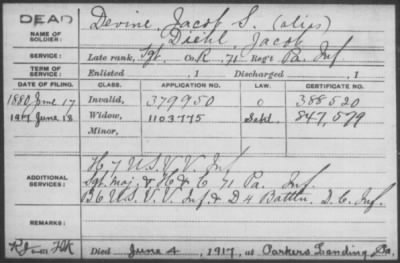 DEAD
NAME OF SOLDIER: Devine, Jacob S. (alias)
Diehl, Jacob
SERVICE: Late rank, Sgt. Co. R, 71 Reg't Pa. Inf
TERM OF SERVICE: Enlisted , 1 Discharged , 1
DATE OF FILING. CLASS. APPLICATION NO. LAW. CERTIFICATE NO.
1880 June 17 Invalid, 379950 O 388520
1917 June 18 Widow, 1103775 847,579
Minor,
H 7 U.S.V.V. Inf
ADDITIONAL SERVICES: Sgt. Maj. & H & E 71 Pa. Inf.
B 6 U.S.V.V. Inf & D 4 Battln. D.C. Inf.
REMARKS:
Died June 4, 1917, at Parkers Landing Pa.